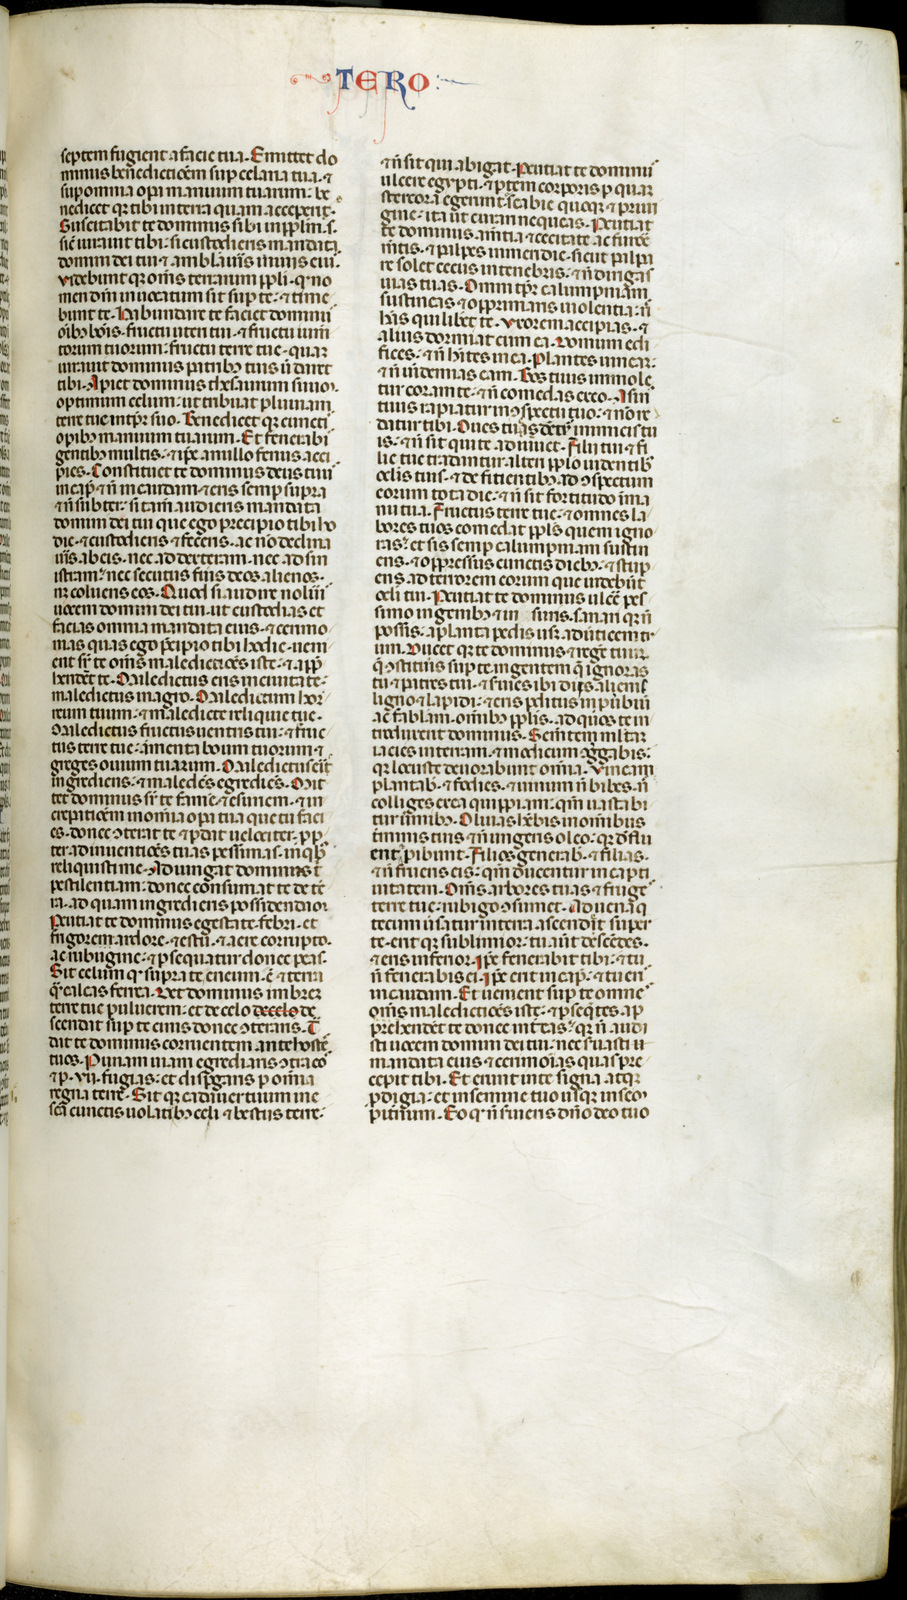 TERO
septem fugient a facie tua. Emittet do
minus benedictiōem sup celaria tua. ⁊
sup omnia opa manuum tuarum: be
nedicet qƺ tibi in terra quam acceperis.
Suscitabit te dominus sibi in pplm̄ s.
sic̄ iurauit tibi: si custodiens mandata
domini dei tui ⁊ ambl̄aūis in uiis eius.
Videbunt qƺ om̄s terrarum ppli. q no
men dn̄i inuocatum sit sup te: ⁊ time
bunt te. Habundare te faciet dominus
oībƺ bōis. fructu uteri tui. ⁊ fructu ium̄
torum tuorum: fructu terre tue. quam
iurauit dominus patribƺ tuis ut daret
tibi. Apiet dominus thesaurum suum
optimum celum: ut tribuat pluuiam
terre tue in tpr̄ suo. Benedicet qƺ cuncti
opibƺ manuum tuarum. Et fenerabi
gentibƺ multis: ⁊ ipe a nullo fenus acci
pies. Constituet te dominus deus tuus
in cap̄. ⁊ n̄ in caudam. ⁊ eris semp supra
⁊ n̄ subter: si tam̄ audieris mandata
domini dei tui que ego precipio tibi ho
die. ⁊ custodieris ⁊ feceris. ac n̄o declina
ūis ab eis. nec ad dexteram. nec ad sin
istram: nec secutus fūis deos alienos.
nƺ colueris eos. Quod si audire nolūis
uocem domini dei tui. ut custodias et
facias omnia mandata eius. ⁊ cerimo
nias quas ego p̄cipio tibi hodie. ueni
ent sr̄ te om̄s maledictiōes iste: ⁊ app̄
hendēt te. Maledictus eris in ciuitate:
maledictus in agro. Maledictum hor
reum tuum: ⁊ maledicte reliquie tue.
Maledictus fructus uentris tui: ⁊ fruc
tus terre tue: armenta boum tuorum ⁊
greges ouium tuarum. Maledictus er̄
ingrediens: ⁊ maledc̄s egrediēs. Mit
tet dominus sr̄ te famē. ⁊ esuriem. ⁊ in
crepatiōem in omnia opa tua que tu faci
es. donec ↄterat te ⁊ pdat uelociter. pp
ter adinuentiōes tuas pessimas. in qibƺ
reliquisti me. Adiungat dominus t̄
pestilentiam: donec consumat te de tē
ra. ad quam ingredieris possidendam
Percutiat te dominus egestate. febri. et
frigore. ardore. ⁊ estu. ⁊ aere corrupto.
ac rubigine: ⁊ psequatur donec peas.
Sit celum qd supra te eneum: ⁊ terra
q̄ calcas ferrea. Det dominus imbrem
terre tue puluerem: et de celo de celo de
scendat sup te cinis donec ↄteraris. T
dat te dominus corruentem ante hostes
tuos. P unam uiam egrediaris ↄtra eos
⁊ p. vii. fugias: et dispgaris p om̄ia
regna terre. Sit qƺ cadauer tuum in e
scā cunctis uolatibƺ celi ⁊ bestiis terre:
⁊ n̄ sit qui abigat. Percutiat te dominus
ulcere egypti. ⁊ ptem corporis p quam
stercora egerunt. scabie quoqƺ ⁊ pruri
gine: ita ut curari nequeas. Percutiat
te dominus. am̄tia ⁊ cecitate ac furore
m̄tis. ⁊ palpes in meridie. sicut palpa
re solet cecus in tenebris: ⁊ n̄ dirigas
uias tuas. Omni tpr̄ calumpniam
sustineas ⁊ opprimaris uiolentia: n̄
habeas qui liberet te. Vxorem accipias. ⁊
alius dormiat cum ea. Domum edi
fices: ⁊ n̄ hītes in ea. Plantes uineam:
⁊ n̄ uindemias eam. Bos tuus immole
tur coram te: ⁊ n̄ comedas ex eo. Asin
tuus rapiatur in ↄspectu tuo: ⁊ n̄ore
datur tibi. Oues tuas dent̄ inimicis tu
is: ⁊ n̄ sit qui te adiuuet. Filii tui ⁊ fi
lie tue tradantur alteri pplo uidentibƺ
oculis tuis. ⁊ deficientibƺ ad ↄspectum
eorum tota die: ⁊ n̄ sit fortitudo in ma
nu tua. Fructus terre tue: ⁊ omnes la
bores tuos comedat ppls quem igno
ras: et sis semp calumpniam sustin
ens. ⁊ oppressus cunctis diebƺ: ⁊ stup
ens ad terrorem eorum que uidebūt
oculi tui. Percutiat te dominus ulcē pes
simo in genibƺ ⁊ in suris. sanari qƺ n̄
possis. a planta pedis usqƺ ad ūticem tu
um. Ducet qƺ te dominus ⁊ regē tuum
q̄ ↄstitūis sup te in gentem q̄ ignoras
tu ⁊ patres tui. ⁊ seruies ibi diis alienis
ligno ⁊ lapidi: ⁊ eris pditus in puerbium
ac fablam. omibƺ pplis. ad quos te in
troduxerit dominus. Sementem mltam
iacies in terram. ⁊ modicum ↄgregabis:
qƺ locuste deuorabunt omnia. Vineam
plantabis. ⁊ fodies. ⁊ uinum n̄ bibes. n̄
colliges ex ea quippiam: qm̄ uastabi
tur ūmibƺ. Oliuas hēbis in omnibus
tīminis tuis ⁊ n̄ ungeris oleo: qƺ deflu
ent ⁊ pibunt. Filios generabis. ⁊ filias.
⁊ n̄ frueris eis: qm̄ ducentur in capti
uitatem. Om̄s arbores tuas ⁊ fruges
terre tue: rubigo ↄsumet. Aduena q
tecum ūsatur in terra ascendet super
te. erit qƺ sublimior: tu aūt descēdes.
⁊ eris inferior. Ipe fenerabit tibi: ⁊ tu
n̄ fenerabis ei. Ipe erit in cap̄: ⁊ tu eris
in caudam. Et uenient sup te omnes
om̄s maledictiōes iste: ⁊ pseqn̄tes ap
prehendēt te donec intēas: qƺ n̄ audi
sti uocem domini dei tui: nec seruasti
mandata eius ⁊ cerimōias quas pre
cepit tibi. Et erunt in te signa atqƺ
pdigia: et in semine tuo usqƺ in sem
piternum. Eo qd n̄ seruieris dn̄o deo tuo